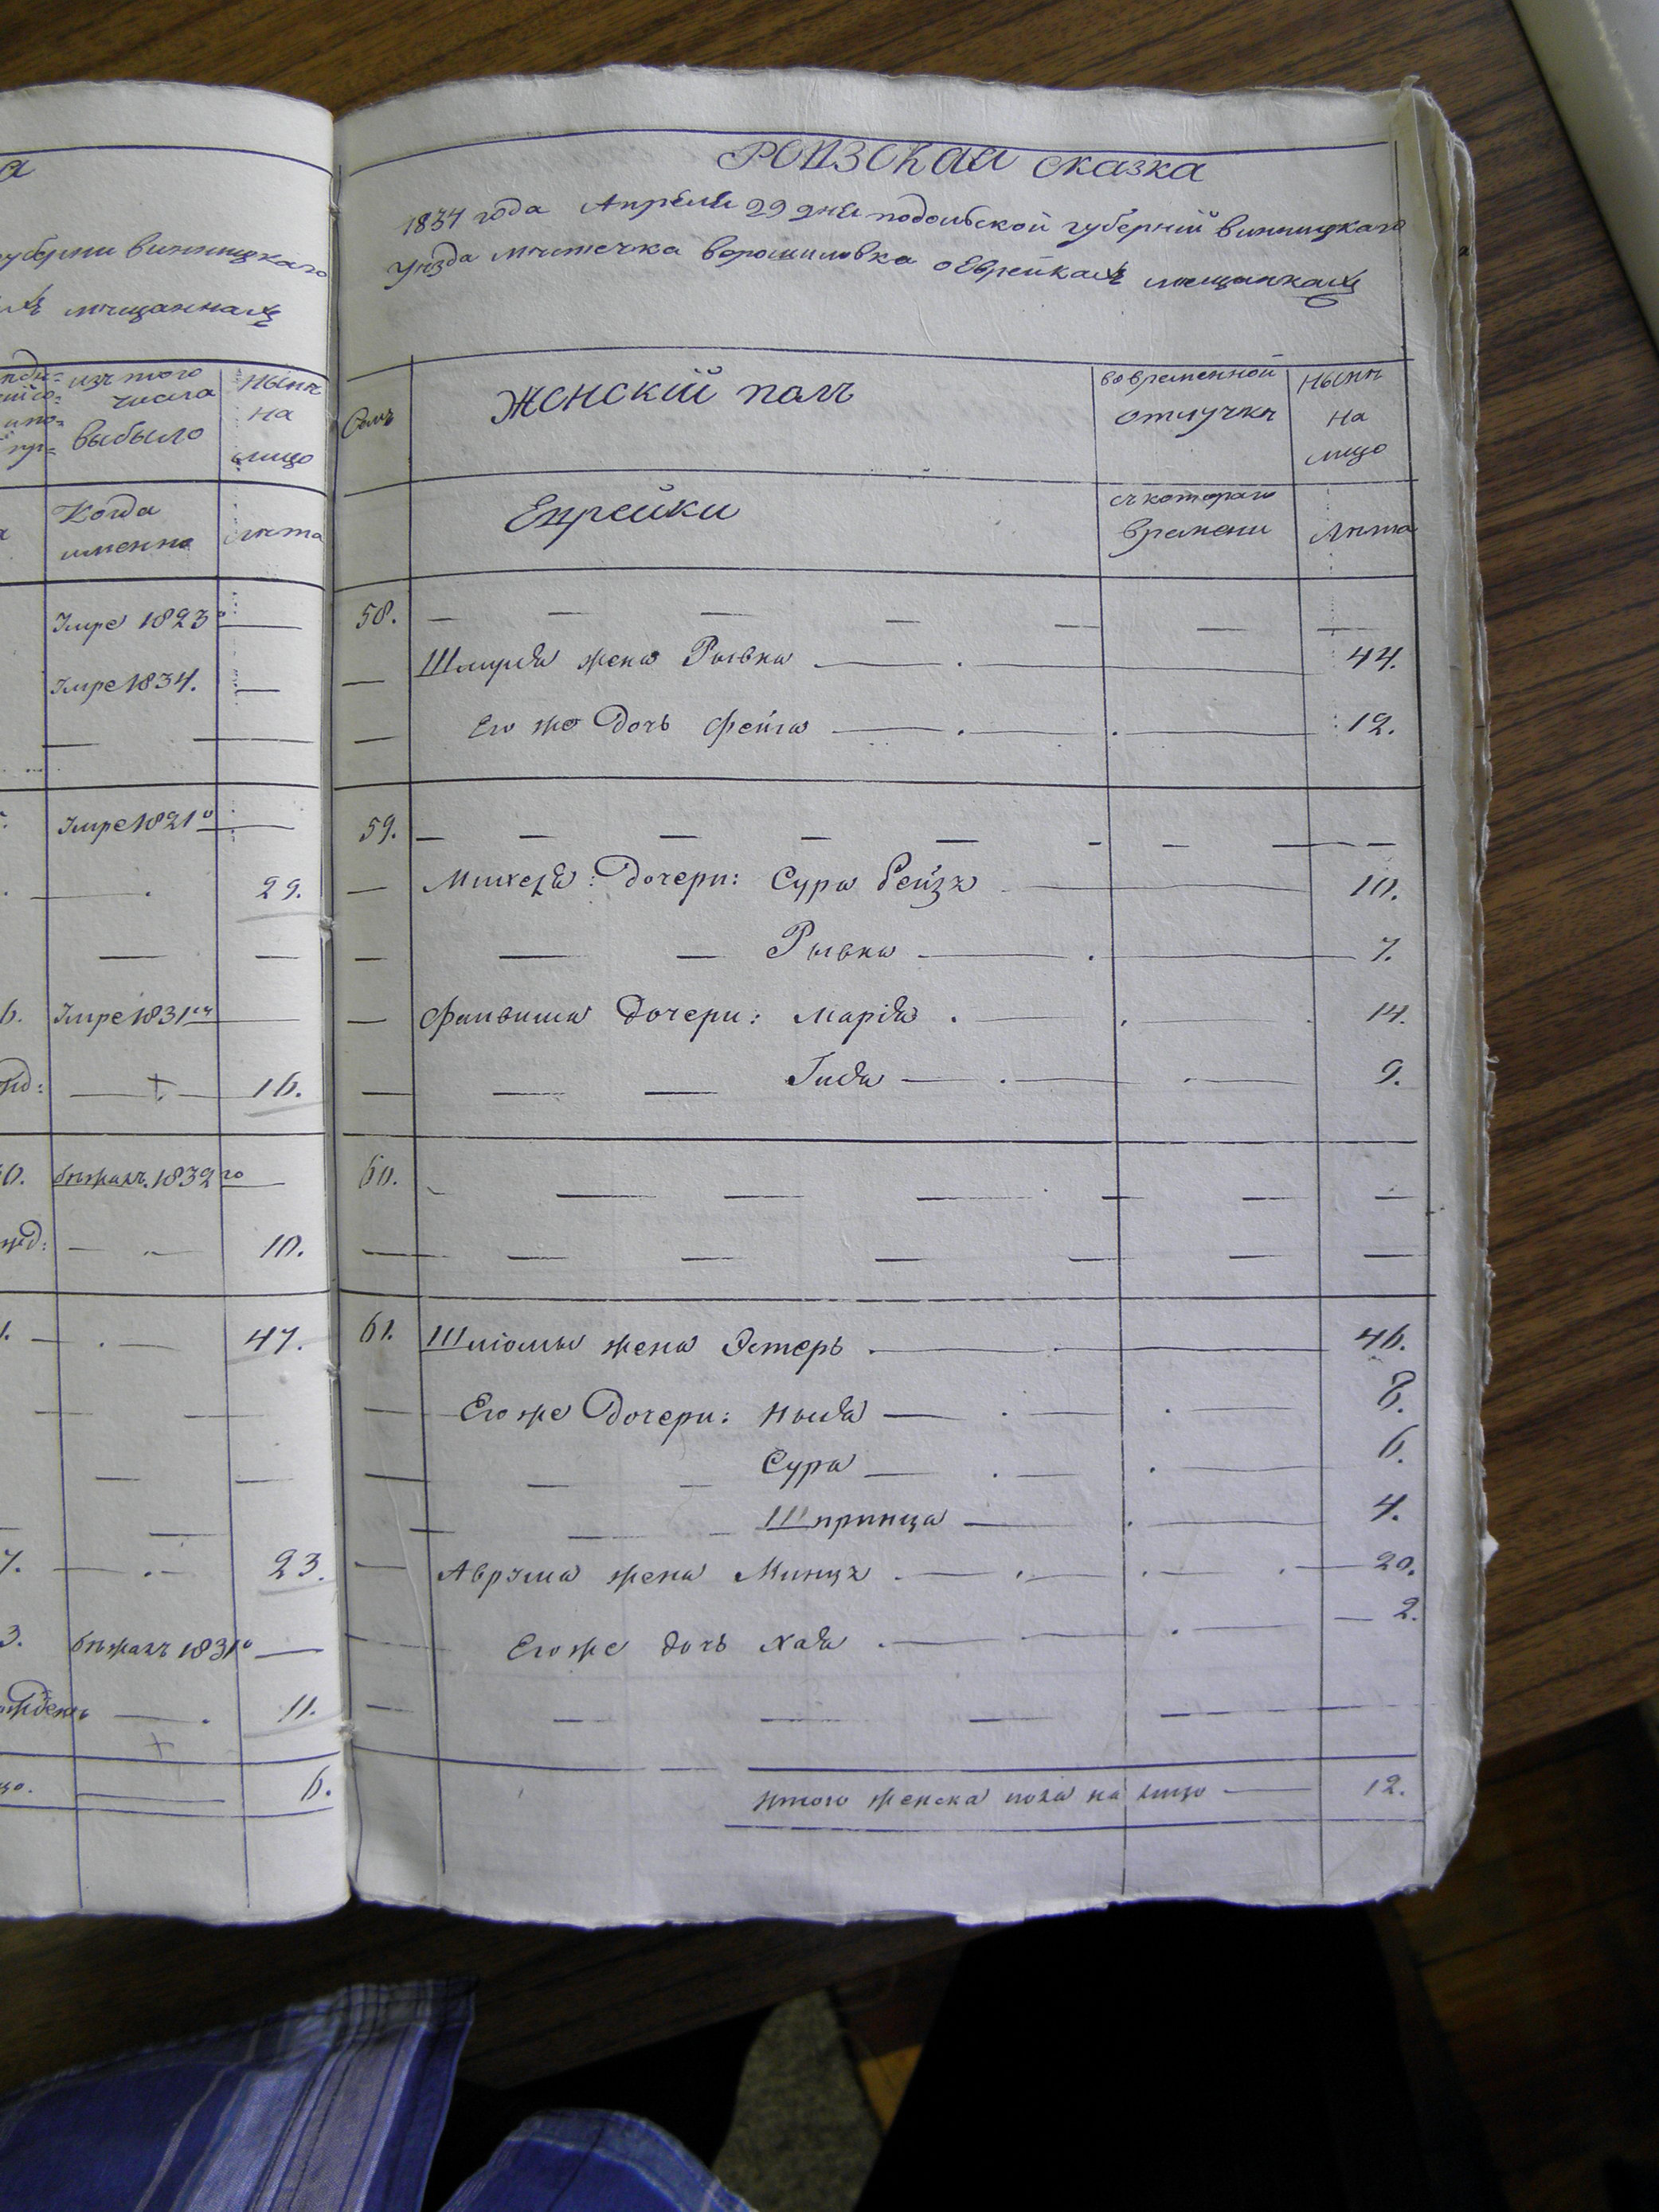 а
губерни винницкаго
мѣщаннахъ
изъ того числа
выбыло
нынѣ
на
лицо
Когда
именно
лѣта
Умре 1823º
Умре 1834.
Умре 1821º
29.
6. Умре 1831го
16.
0. бѣжалъ. 1832го
10.
47.
7. 23.
3. бѣжалъ 1831º
11.
6.
РЕВЗСКАЯ сказка
1834 года Апреля 29 дня подольской губерніи винницкаго
уѣзда мѣстечка ворошиловка о Еврейкахъ мещанкахъ
Женскій полъ
во временной
отлучкѣ
нынѣ
на
лицо
Еврейки
съ котораго
времени
лѣта
58. — — — — — —
— Шмуля жена Рывка — 44.
— Его же Дочь Фейга — 12.
59. — — — — — — — —
— Дочери: Сура Рейзя — 10.
— — — Рывка — 7.
— Фаивиша Дочери: Марія — 14.
— — — Гидя — 9.
60. — — — — — —
— — — — — — —
61. Шліомы жена Эстеръ — 46.
— Его же Дочери: — 8.
— — — Сура — 6.
— — — Шпринца — 4.
— Аврума жена Минця — 20.
— Его же дочь Хая — 2.
— — — — — —
Итого женска пола на лицо — 12.